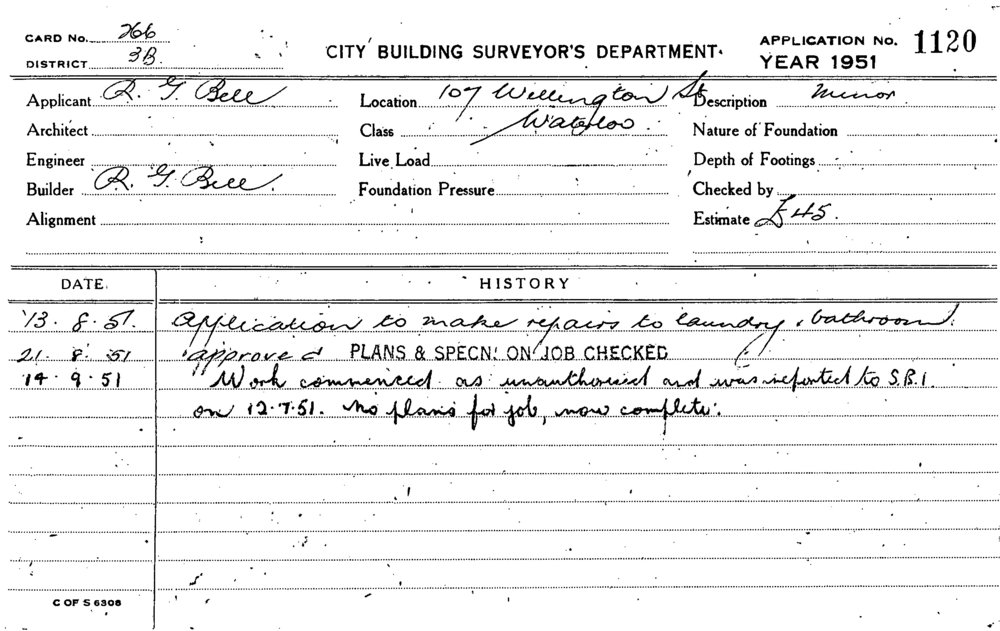 CARD No. 266
DISTRICT 3B.
CITY BUILDING SURVEYOR'S DEPARTMENT.
APPLICATION No. 1120
YEAR 1951
Applicant R. G. Bell
Location 107 Wellington St
Waterloo
Description Minor
Architect
Class
Nature of Foundation
Engineer
Live Load
Depth of Footings
Builder R. G. Bell.
Foundation Pressure
Checked by
Alignment
Estimate £45.
DATE.
HISTORY
13.8.51. Application to make repairs to laundry, bathroom.
21.8.51 approved PLANS & SPECN. ON JOB CHECKED
14.9.51 "Work commenced as unauthorised and was reported to S.B.I.
on 12.7.51. No plans for job, now complete".
C OF S 6308